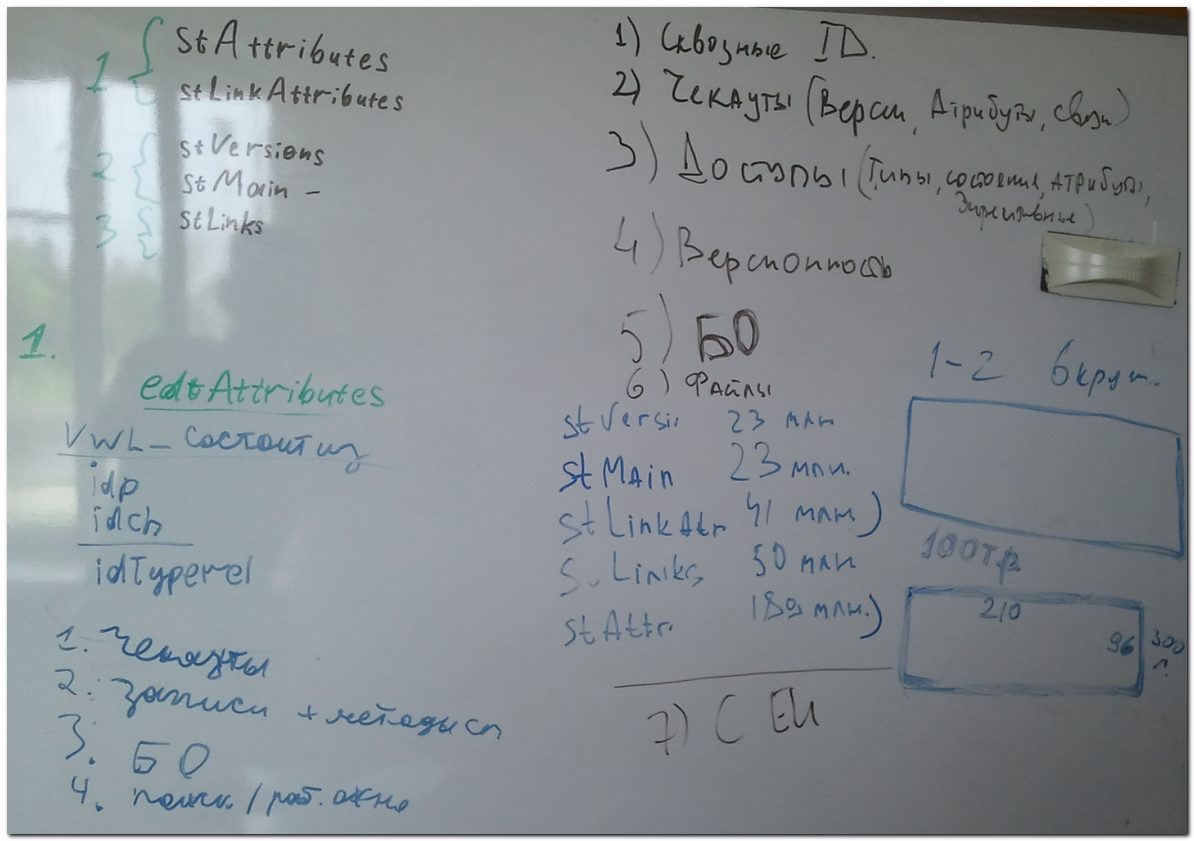 1 { stAttributes
stLinkAttributes
2 { stVersions
stMain –
3 { stLinks
1.
edtAttributes
VWL_состоит из
idp
idch
idTyperel
1. Чекауты
2. Записи + методы сп
3. БО
4. поиск / раб. окно
1) Сквозные ID.
2) Чекауты (Версии, Атрибуты, Связи)
3) Доступы (Типы, состояния, атрибуты,
)
4) Версионность
5) БО
6) Файлы
stVersi 23 млн
stMain 23 млн.
stLinkAtr 41 млн)
St Links 50 млн
stAttr. 189 млн.)
7) С ЕИ
1-2 6 круг.
100т.р.
210
96
300
л.